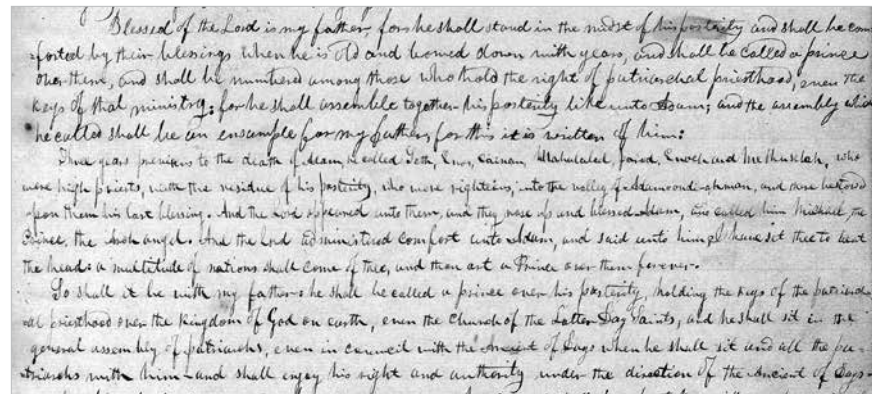 Blessed of the Lord is my father, for he shall stand in the midst of his posterity and shall be com-
-forted by their blessings when he is old and bowed down with years, and shall be called a prince
over them, and shall be numbered among those who hold the right of patriarchal priesthood, even the
keys of that ministry: for he shall assemble together his posterity like unto Adam; and the assembly which
he called shall be an ensample for my father, for thus it is written of him:
Three years previous to the death of Adam, he called Seth, Enos, Cainan, Mahalaleel, Jared, Enoch and Methuselah, who
were high priests, with the residue of his posterity, who were righteous, into the valley of Adam-ondi-ahman, and there bestowed
upon them his last blessing. And the Lord appeared unto them, and they rose up and blessed Adam, and called him Michael, the
Prince, the Arch angel. And the Lord administered comfort unto Adam, and said unto him, I have set thee to be at
the head: a multitude of nations shall come of thee, and thou art a Prince over them forever.
So shall it be with my father: he shall be called a prince over his posterity, holding the keys of the patriarch-
-al priesthood over the kingdom of God on earth, even the Church of the Latter Day Saints, and he shall sit in the
general assembly of patriarchs, even in council with the Ancient of Days when he shall sit and all the pa-
-triarchs with him—and shall enjoy his right and authority under the direction of the Ancient of Days.